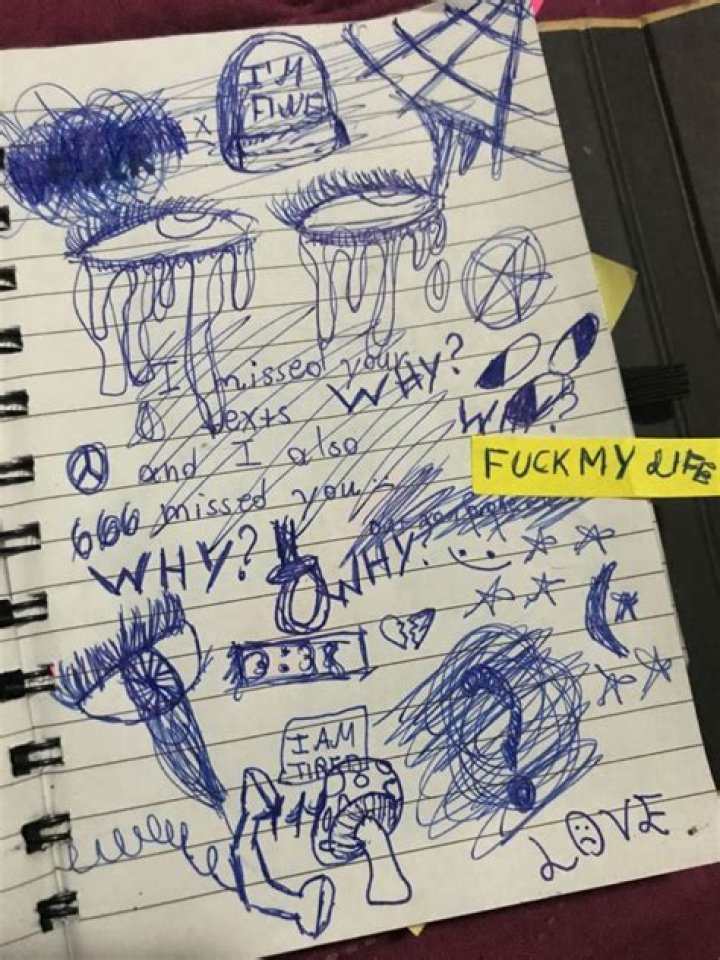 I'M
FINE
x
I missed your
WHY?
texts
WHY?
and I also
FUCK MY LIFE
666 missed you
WHY?
WHY?
I AM
TIRED
LOVE